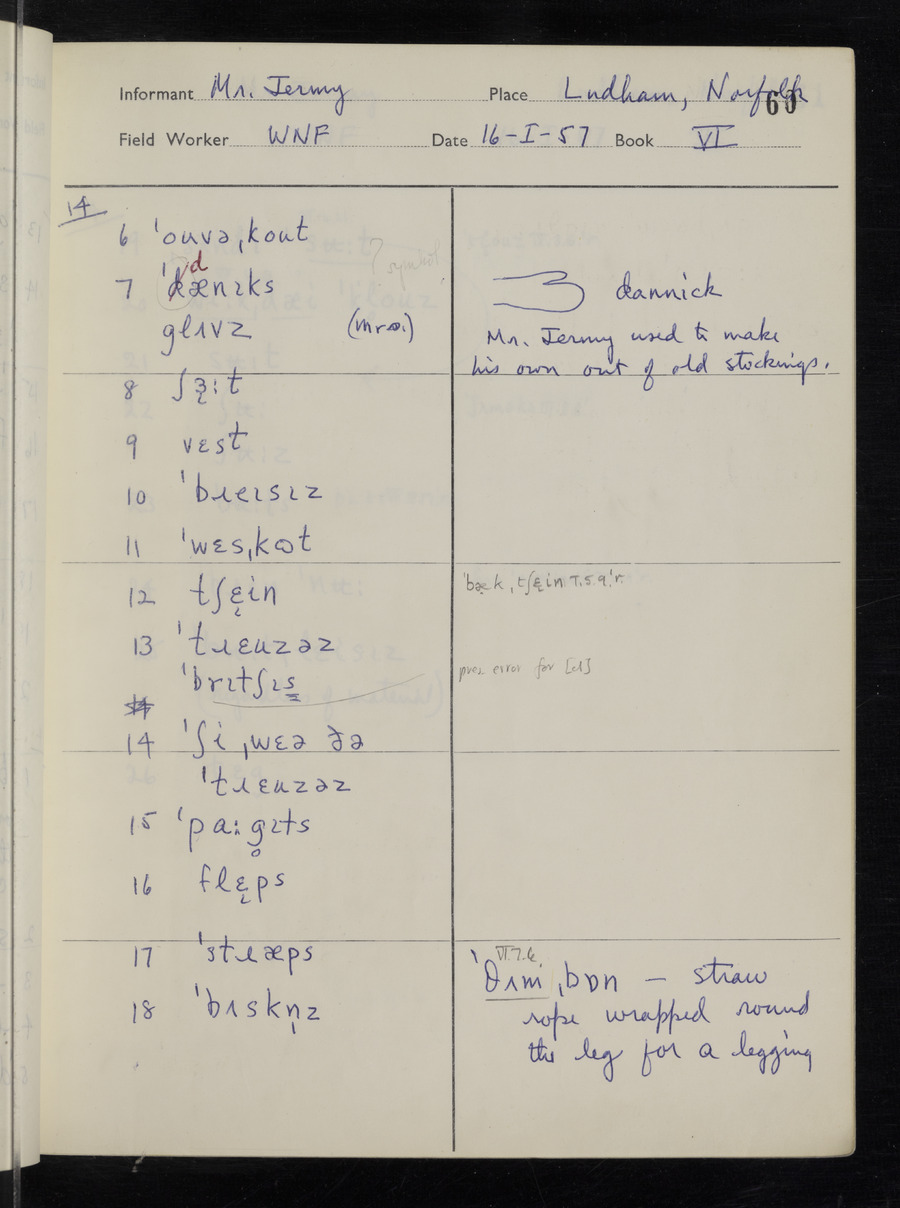 Informant Mr. Jermy Place Ludham, Norfolk 60
Field Worker WNF Date 16-I-57 Book VI
14
6 ˈouvəˌkout
? symbol
7 ˈdænɪks
glʌvz
dannick
Mr. Jermy used to make
his own out of old stockings.
8 ʃɜ̨:t
9 vɛst
10 ˈbɹeɪsɪz
11 ˈwɛsˌkɒt
12 tʃɛ̨in ˈbækˌtʃɛ̨in
13 ˈtɹɛuzəz
ˈbrɪtʃɪs pres. error for [ɹ]
14 ˈʃi ˌwɛə ðə
ˈtɹɛuzəz
15 ˈpa:g̥ɪts
16 flɛ̨ps
17 ˈstɹæps
VI.7.6
ˈθʌmˌbɒn — straw
18 ˈbʌskn̩z
rope wrapped round
the leg for a legging